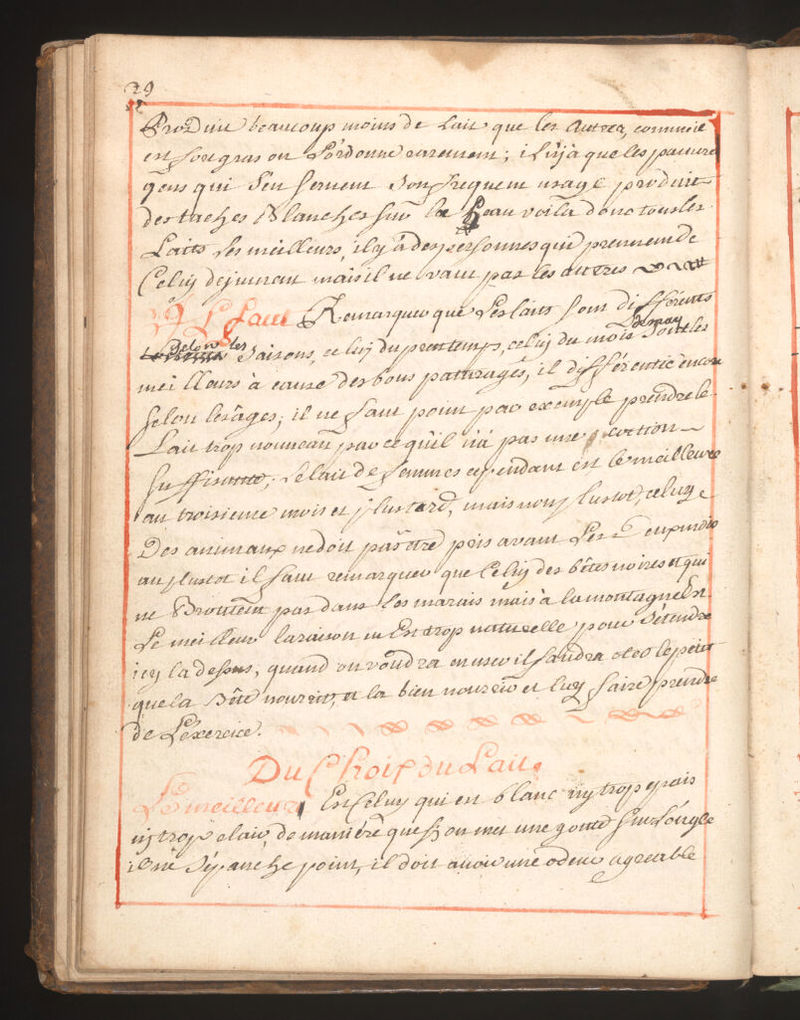 29
Produit beaucoup moins de Lait que les Autres, comme il
est fort gras on L'ordonne rarement; il n'y à que les pauvres
gens qui s'en servent son frequent usage produit
des taches Blanches sur la Peau voila donc tous les
Laits Les meilleurs, il y à des personnes qui prennent de
Celuy de jument mais il ne vaut pas les autres
Il Faut Remarquer que Les laits sont differents
selon les Saisons, celuy du printemps, celuy du mois de may sont les
meilleurs à cause des bons patturages, il differentie encore
selon les âges; il ne faut point par exemple prendre le
Lait trop nouveau par ce qu'il n'à pas une coction
suffisante; Le lait de femmes cependant est le meilleur
au troisieme mois et plus tard, mais non plustot, celuy
Des animaux ne doit pas être pris avant Les
au plustot il faut remarquer que Celuy des bêtes noires et qui
ne Broutent pas dans Les marais mais à la montagne Est
Le meilleur la raison en Est trop naturelle pour s'étendre
icy la dessus, quand on voudra en user il faudra oter le petit
que la Bête nourrit, et la bien nourrir et luy faire prendre
de L'exercice.
Du Choix du Lait.
Le meilleur Est Celuy qui est blanc ny trop epais
ny trop clair, de maniére que si on met une goute sur L'ongle
il ne s'épanche point, il doit avoir une odeur agreable